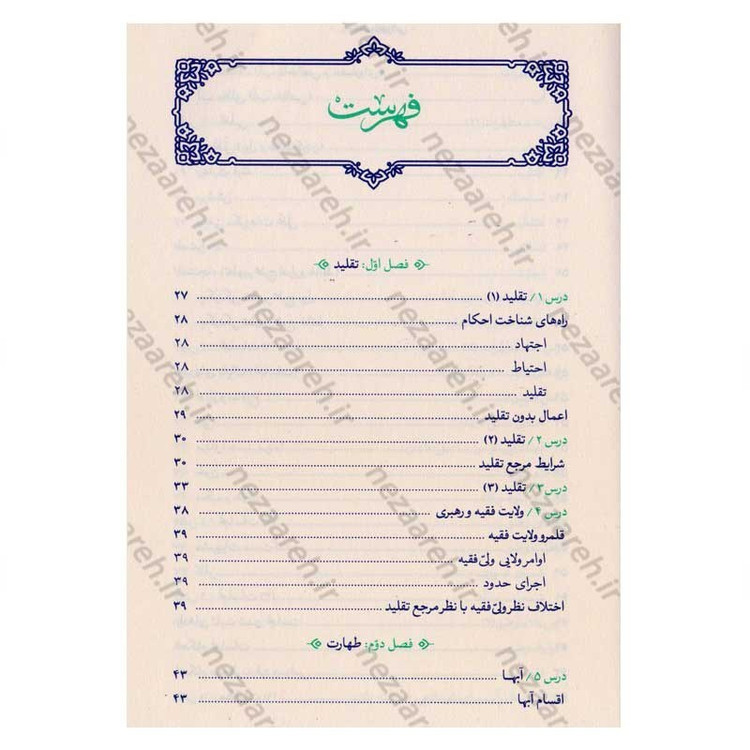 فهرست
فصل اوّل: تقلید
درس ۱/ تقلید (۱) ۲۷
راه‌های شناخت احکام ۲۸
اجتهاد ۲۸
احتیاط ۲۸
تقلید ۲۸
اعمال بدون تقلید ۲۹
درس ۲/ تقلید (۲) ۳۰
شرایط مرجع تقلید ۳۰
درس ۳/ تقلید (۳) ۳۳
درس ۴/ ولایت فقیه و رهبری ۳۸
قلمرو ولایت فقیه ۳۹
اوامر ولایی ولیّ فقیه ۳۹
اجرای حدود ۳۹
اختلاف نظر ولیّ فقیه با نظر مرجع تقلید ۳۹
فصل دوّم: طهارت
درس ۵/ آبها ۴۳
اقسام آبها ۴۳
nezaareh.ir